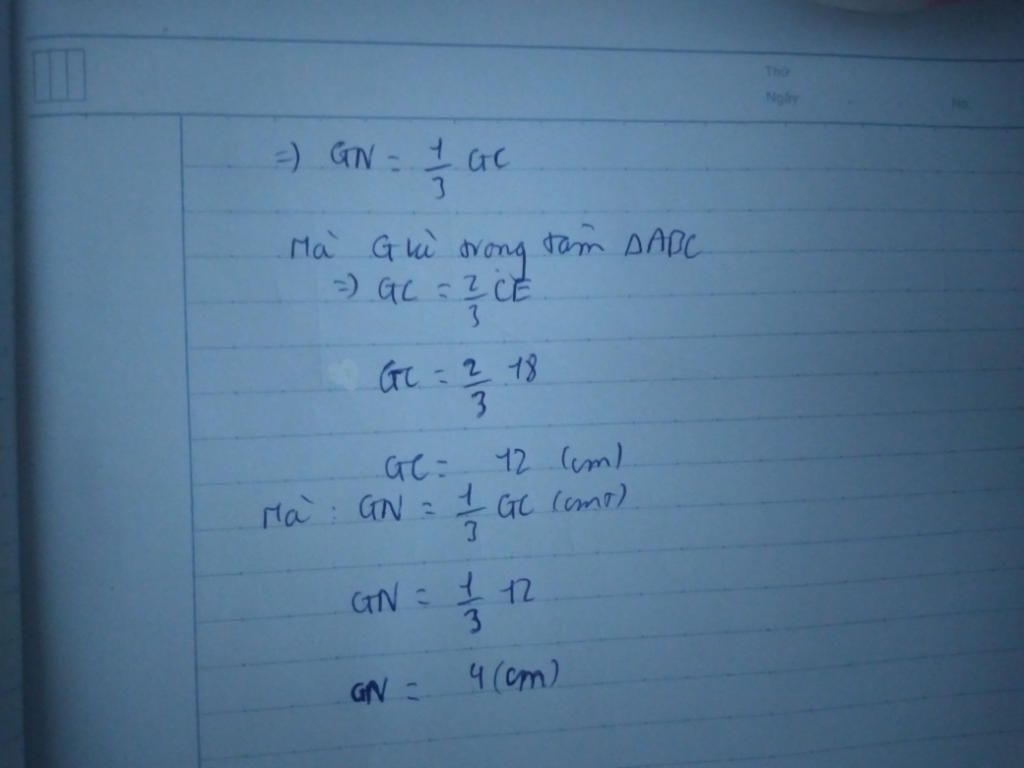 Thứ
Ngày No.
=) GN = 1/3 GC
Mà G là trọng tâm ΔABC
=) GC = 2/3 CE
GC = 2/3 18
GC = 12 (cm)
Mà : GN = 1/3 GC (cmt)
GN = 1/3 12
GN = 4 (cm)